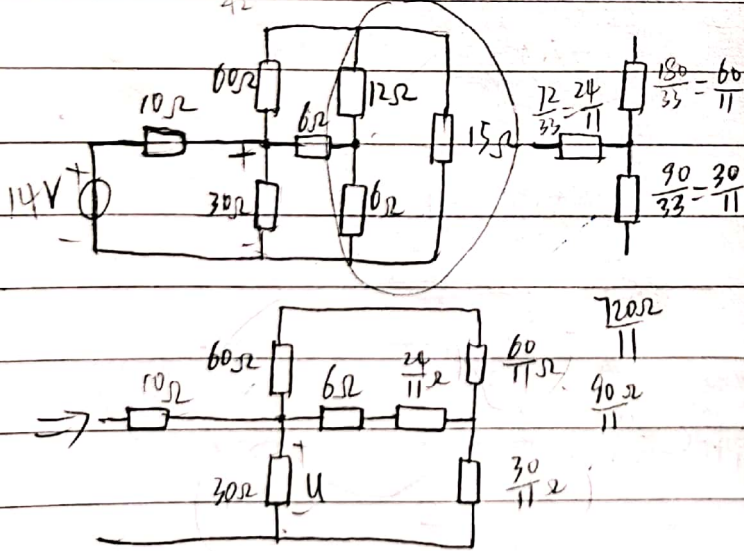 42
60Ω 12Ω
10Ω 6Ω 15Ω
14V + - + 30Ω - 6Ω
72/33=24/11 180/33=60/11
90/33=30/11
720Ω/11
60Ω 6Ω 24/11Ω 60/11Ω
90Ω/11
⇒ 10Ω
30Ω + U - 30/11Ω